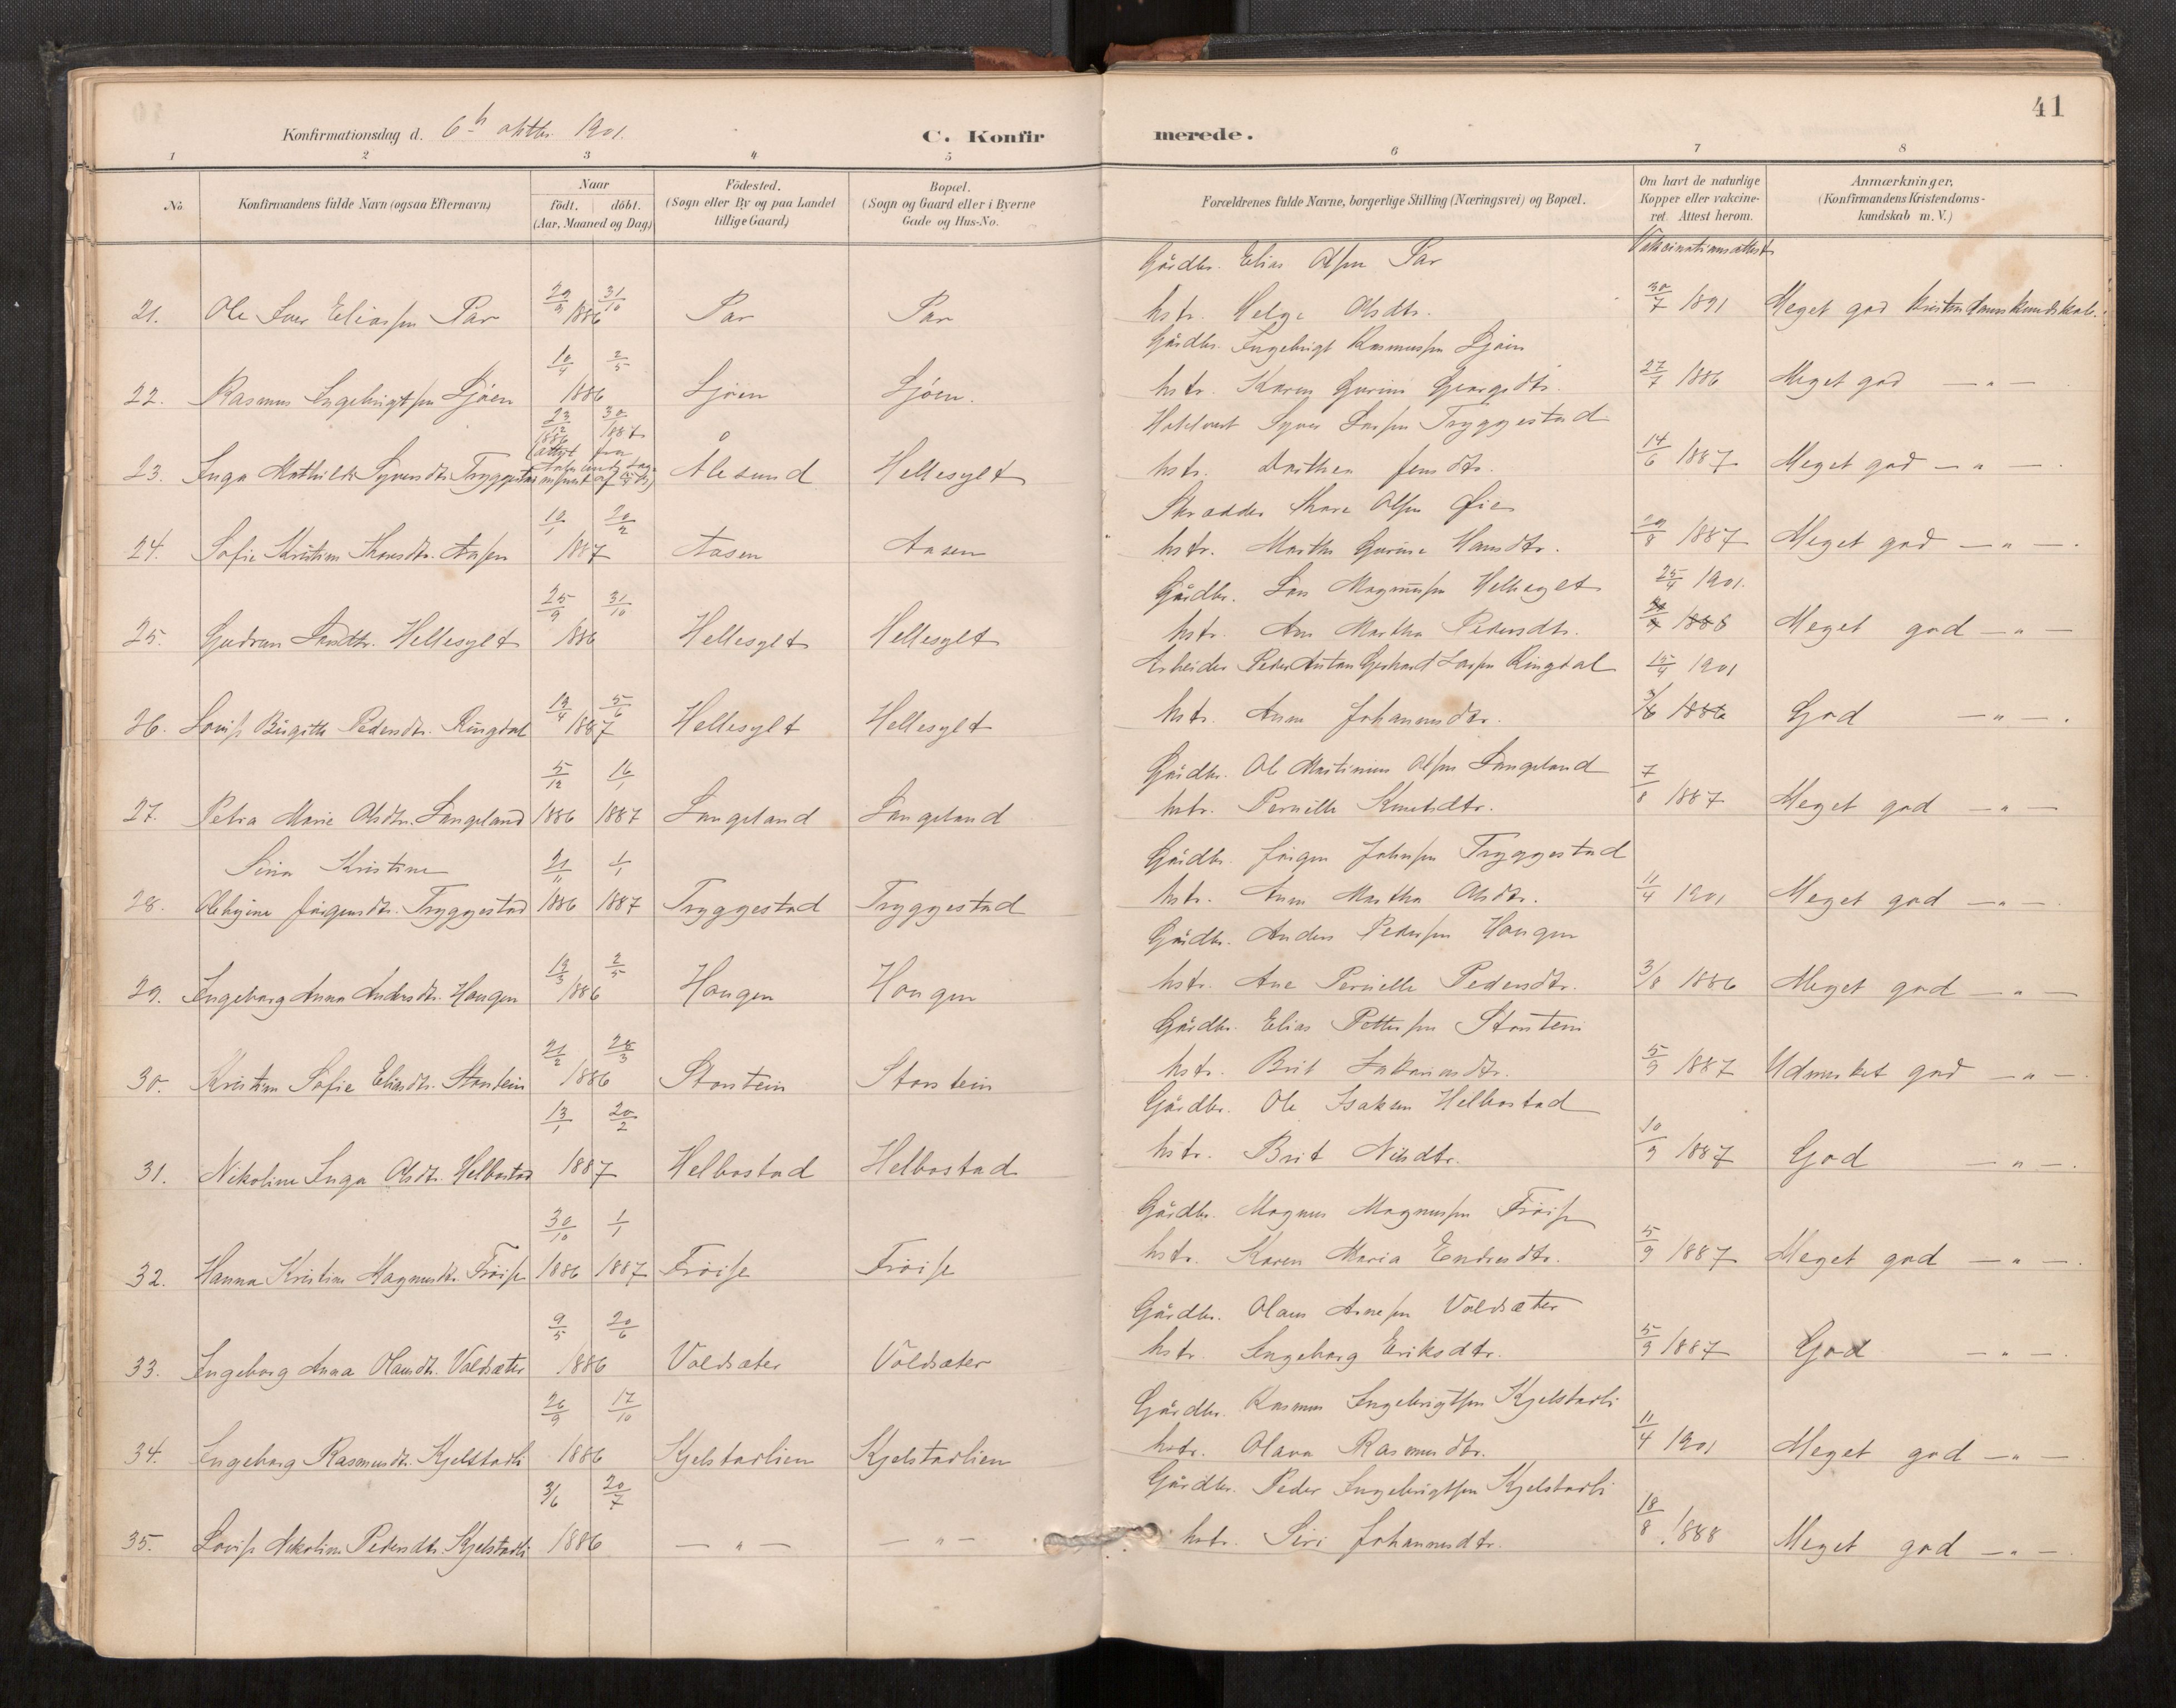 41
Konfirmationsdag d. 6 oktbr. 1901.
C. Konfirmerede.
1 2 3 4 5 6 7 8
No
Konfirmandens fulde Navn (ogsaa Efternavn)
Naar
Födt. döbt.
(Aar, Maaned og Dag)
Födested.
(Sogn eller By og paa Landet
tillige Gaard)
Bopæl.
(Sogn og Gaard eller i Byerne
Gade og Hus-No.
Forældrenes fulde Navne, borgerlige Stilling (Næringsvei) og Bopæl.
Om havt de naturlige
Kopper eller vakcine-
ret. Attest herom.
Anmærkninger,
(Konfirmandens Kristendoms-
kundskab m. V.)
Vakcinationsattest
Gårdbr. Elias Olsen Par
21. Ole Iver Eliassen Par 29/3 31/10 1886 Par Par hstr. Helge Olsdtr. 30/7 1891 Meget god Kristendomskundskab.
Gårdbr. Ingebrigt Rasmussen Ljøen
22. Rasmus Ingebrigtsen Ljøen 10/4 2/5 1886 Ljøen Ljøen. hstr. Karen Gurine Georgsdtr. 27/7 1886 Meget god — " —
Hotelvert Syver Larsen Tryggestad
23. Inga Mathilde Syversdtr. Tryggestad 23/12 1886 30/ 1887 Ålesund Hellesylt hstr. Dorthea Jensdtr. 14/6 1887 Meget god — " — .
Skrædder Thore Olsen Øie
24. Sofie Kristine Thoresdtr. Aasen 10/1 20/2 1887 Aasen Aasen hstr. Marthe Gurine Hansdtr. 29/8 1887 Meget god — " — .
Gårdbr. Lars Magnussen Hellesylt 25/4 1901.
25. Gudrun Larsdtr. Hellesylt 25/9 31/10 1886 Hellesylt Hellesylt hstr. Ane Martha Pedersdtr. 1888 Meget god — " —
Arbeider Peder Antan Gerhard Larsen Ringdal 15/4 1901
26. Lovise Birgitte Pedersdtr. Ringdal 12/4 5/6 1887 Hellesylt Hellesylt hstr. Anne Johannesdtr. 3/6 1886 God — " — .
Gårdbr. Ole Martinus Olsen Langeland
27. Petra Marie Olsdtr. Langeland 5/12 1886 16/1 1887 Langeland Langeland hstr. Pernille Knutsdtr. 7/8 1887 Meget god — " —
Gårdbr. Jørgen Johnsen Tryggestad
Sina Kristine
28. Jørgensdtr. Tryggestad 21/11 1886 1/1 1887 Tryggestad Tryggestad hstr. Anne Martha Olsdtr. 11/4 1901 Meget god — " — .
Gårdbr. Anders Pedersen Haugen
29. Ingeborg Anna Andersdtr. Haugen 12/3 2/5 1886 Haugen Haugen hstr. Ane Pernille Pedersdtr. 3/8 1886 Meget god — " —
Gårdbr. Elias Pettersen Storstein
30. Kristine Sofie Eliasdtr. Storstein 21/2 28/3 1886 Storstein Storstein hstr. Brit Zakariasdtr. 5/9 1887 Udmerket god — " — .
Gårdbr. Ole Isaksen Helbostad
31. Nikoline Inga Olsdtr. Helbostad 13/1 20/2 1887 Helbostad Helbostad hstr. Brit Nilsdtr. 10/9 1887 God — " — .
Gårdbr. Magnus Magnussen Frøise
32. Hanna Kristine Magnusdtr. Frøise 30/10 1886 1/1 1887 Frøise Frøise hstr. Karen Maria Endresdtr. 5/9 1887 Meget god — " — .
Gårdbr. Olaus Arnesen Voldsæter
33. Ingeborg Anna Olausdtr. Voldsæter 9/5 20/6 1886 Voldsæter Voldsæter hstr. Ingeborg Eriksdtr. 5/9 1887 God — " — .
Gårdbr. Rasmus Ingebrigtsen Kjelstadli
34. Ingeborg Rasmusdtr. Kjelstadli 26/9 17/10 1886 Kjelstadlien Kjelstadlien hstr. Olava Rasmusdtr. 11/4 1901 Meget god — " — .
Gårdbr. Peder Ingebrigtsen Kjelstadli
35. Lovise Nikoline Pedersdtr. Kjelstadli 3/6 20/7 1886 — " — — " — hstr. Siri Johannesdtr. 18/8 1888 Meget god — " — .